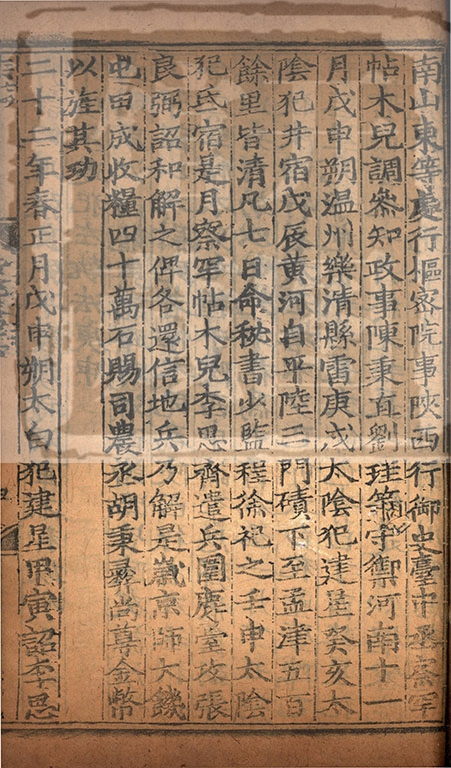 南山東等處行樞密院事陝西行御史臺中丞察罕
帖木兒調參知政事陳秉直劉珪等守禦河南十一
月戊申朔温州樂清縣雷庚戌太陰犯建星癸亥太
陰犯井宿戊辰黄河自平陸三門磧下至孟津五百
餘里皆清凡七日命秘書少監程徐祀之壬申太陰
犯氐宿是月察罕帖木兒李思齊遣兵圍鹿臺攻張
良弼詔和解之俾各還信地兵乃解是歲京師大饑
屯田成收糧四十萬石賜司農丞胡秉彝尚尊金幣
以旌其功
二十二年春正月戊申朔太白犯建星甲寅詔李思